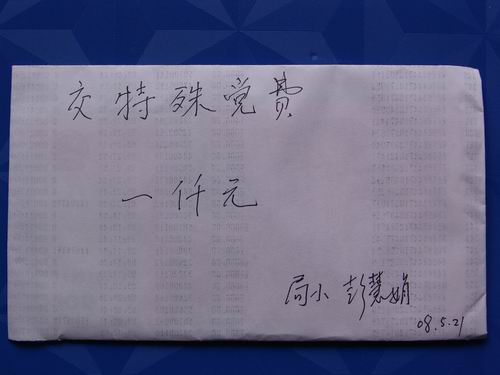 交特殊党费
一仟元
局小 彭慧娟
08.5.21